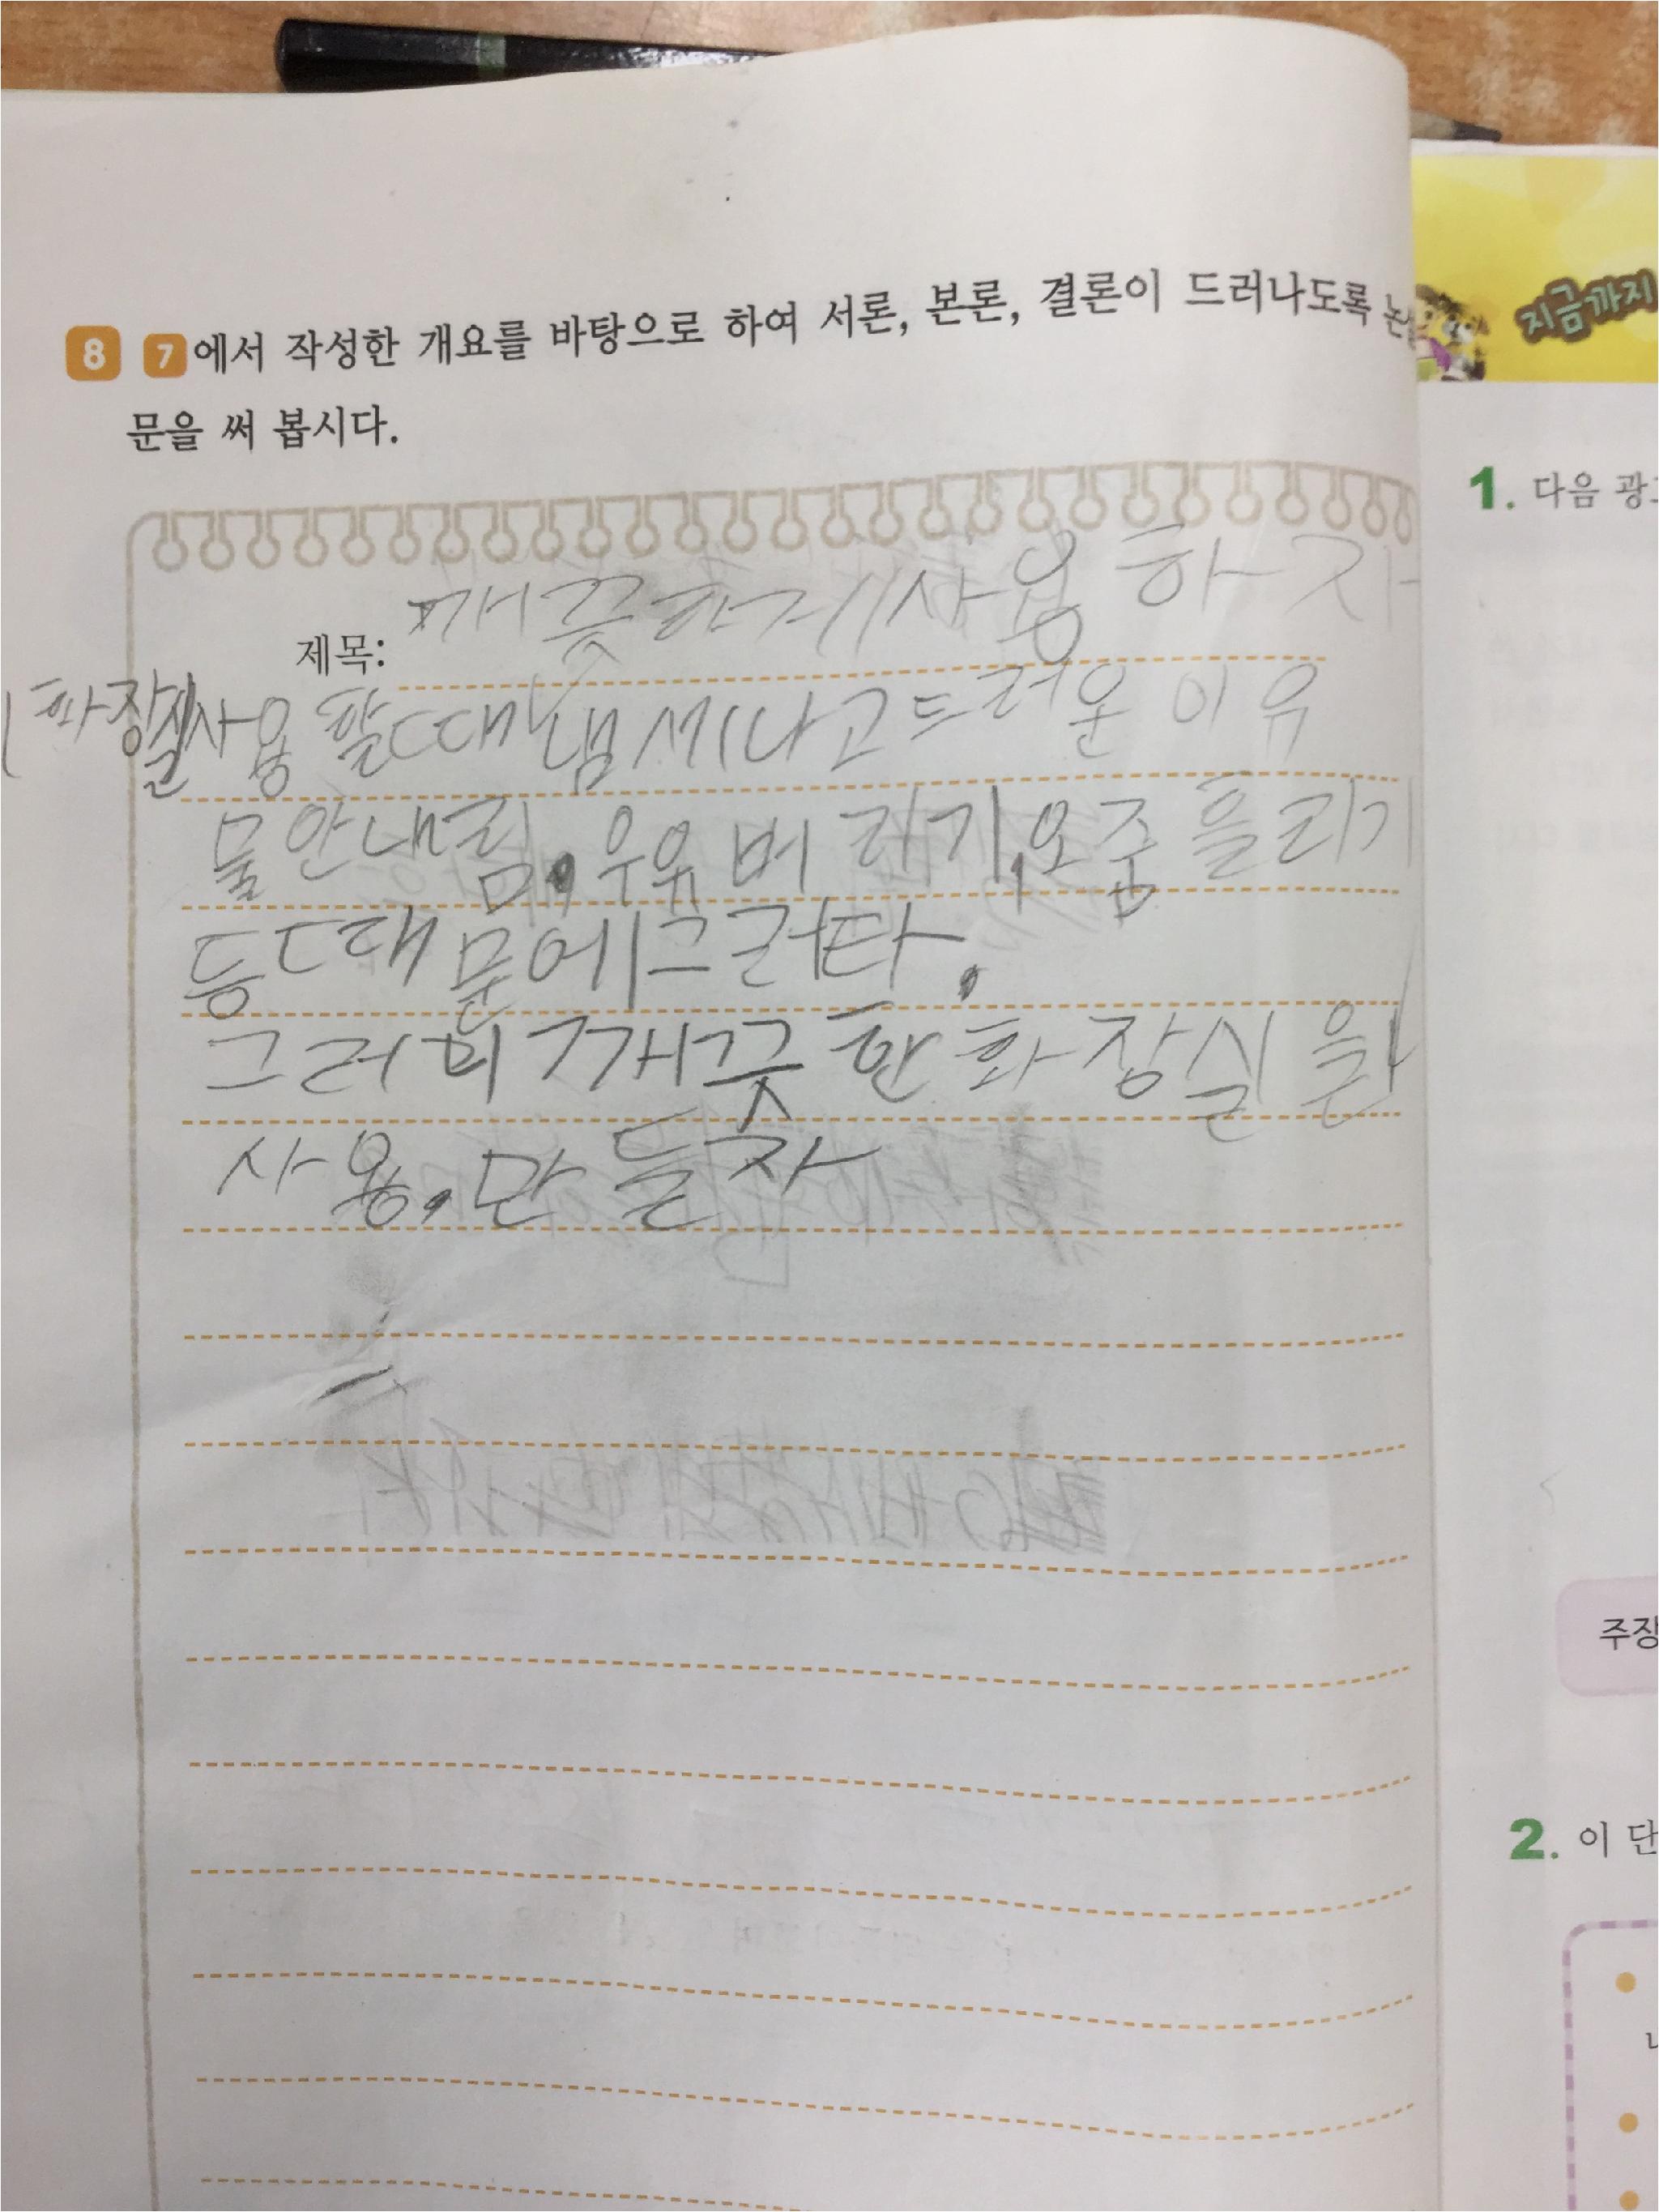 8 7 에서 작성한 개요를 바탕으로 하여 서론, 본론, 결론이 드러나도록 논
문을 써 봅시다.
제목: 깨끗하게 사용하자
화장실사용 할때 냄세나고 드러운 이유
물안내림, 우유버리기, 오줌 흘리기
등 때문에 그러타.
그러며 깨끗한 화장실을
사용, 만들자
지금까지
1. 다음 광
주장
2. 이 단